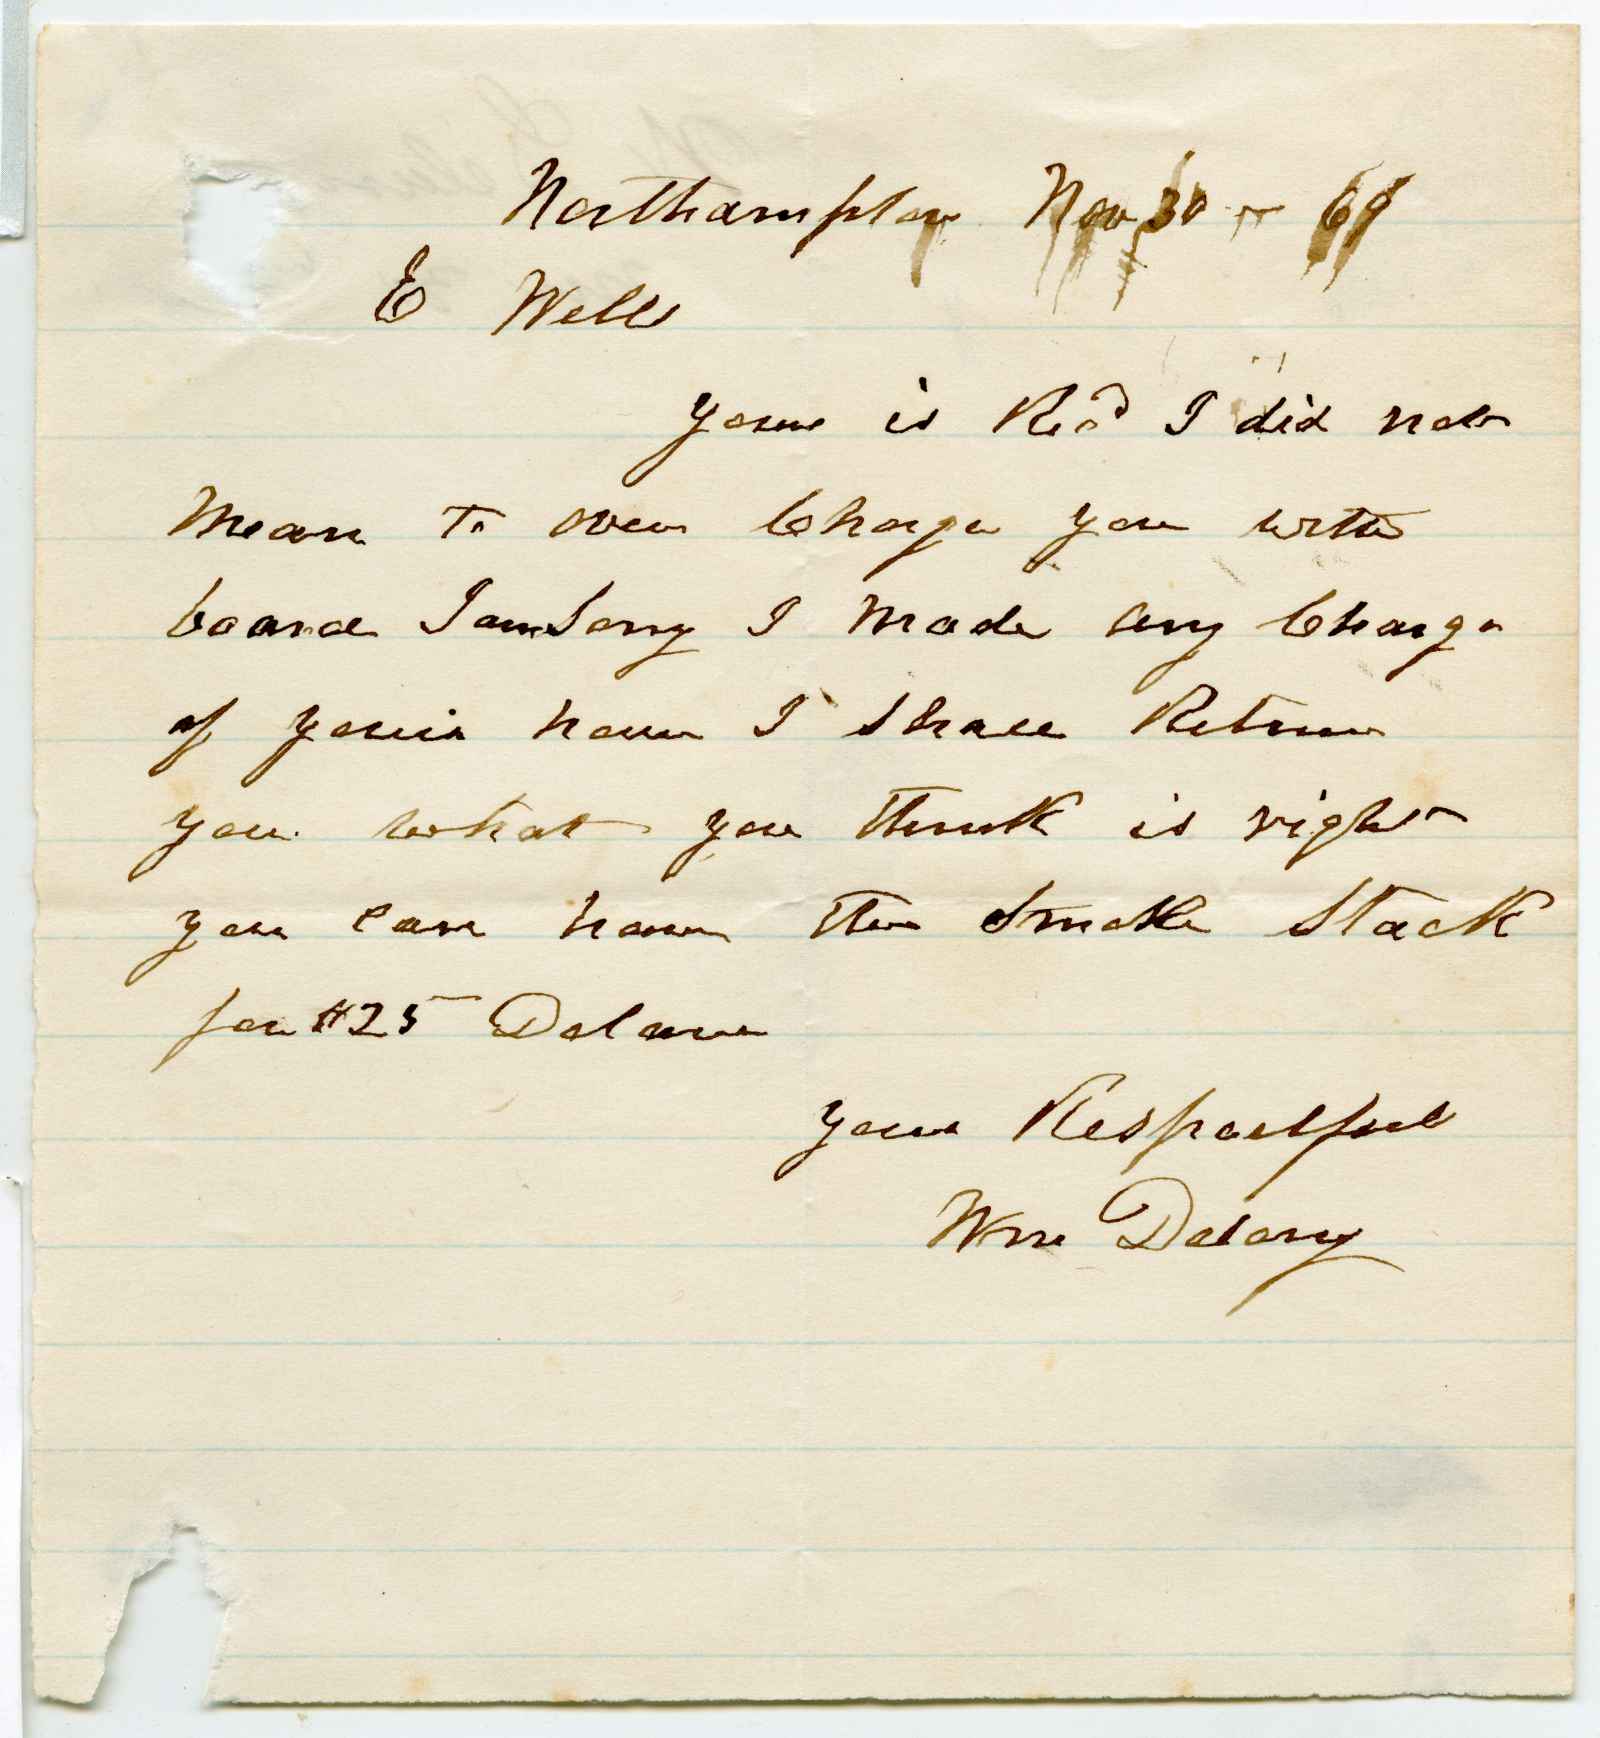 Northampton Nov 30 - 69
E Wells
Yours is Recd I did not
Mean To over Charge you with
board I am Sorry I Made any Charge
if you is have I Shall Return
you what you think is right
you can have the Smoke Stack
for $25 Dolars
yours Respectful
Wm Delany